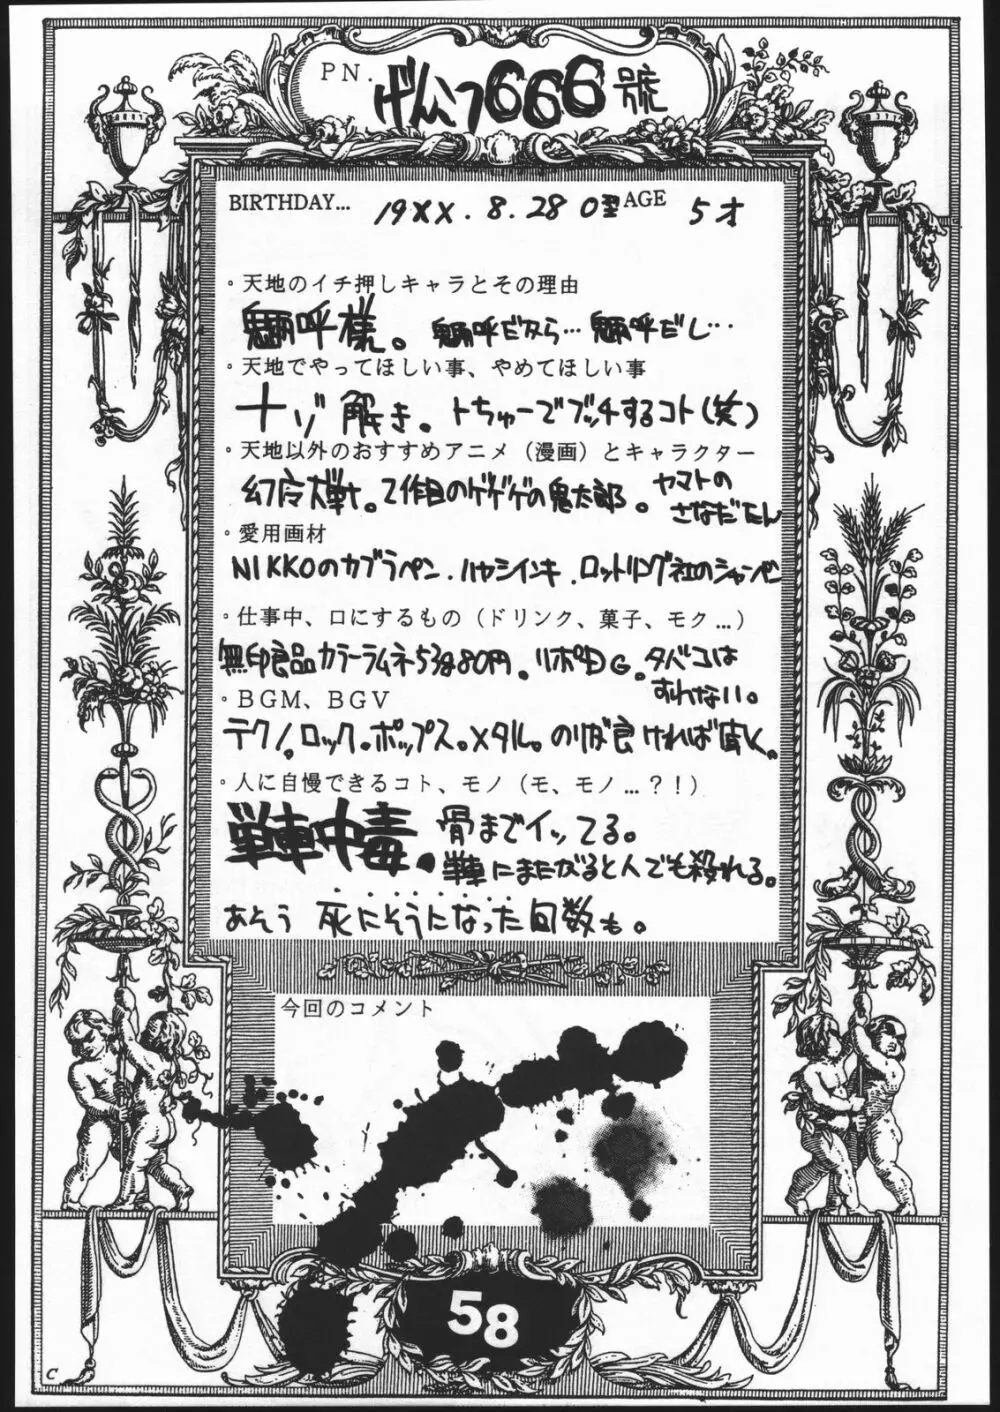 PN. げんこつ666號
BIRTHDAY... 19XX. 8. 28 0型 AGE 5才
・天地のイチ押しキャラとその理由
魎呼様。魎呼だから…魎呼だし…
・天地でやってほしい事、やめてほしい事
ナゾ解き。トちゅーでブッチするコト(笑)
・天地以外のおすすめアニメ（漫画）とキャラクター
幻魔大戦。2作目のゲゲゲの鬼太郎。ヤマトの
さなださん
・愛用画材
NIKKOのカブラペン.ハヤシインキ.ロットリング社のシャーペン
・仕事中、口にするもの（ドリンク、菓子、モク…）
無印良品カラーラムネ53g80円。リポDG。タバコは
すわない。
・BGM、BGV
テクノ。ロック。ポップス。メタル。のりが良ければ
・人に自慢できるコト、モノ（モ、モノ…？！）
戦車中毒。骨までイッてる。
戦車にまたがると人でも殺れる。
あそう 死にそうになった回数も。
今回のコメント
58
C